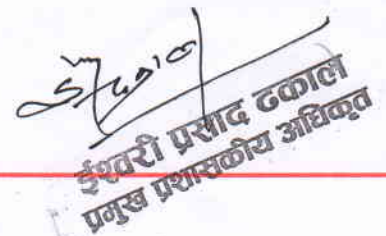 ईश्वरी प्रसाद ढकाल
प्रमुख प्रशासकीय अधिकृत